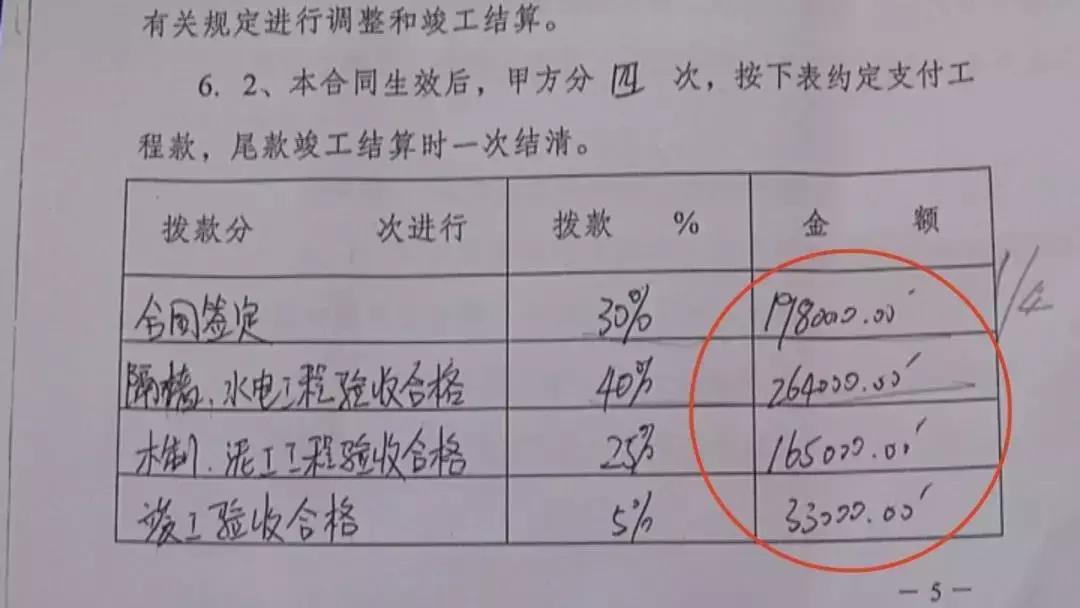 有关规定进行调整和竣工结算。
6. 2、本合同生效后，甲方分 四 次，按下表约定支付工
程款，尾款竣工结算时一次结清。
拨款分 次进行 拨款 % 金 额
合同签定 30% 198000.00
隔墙、水电工程验收合格 40% 264000.00
木制、泥工工程验收合格 25% 165000.00
竣工验收合格 5% 33000.00
— 5 —